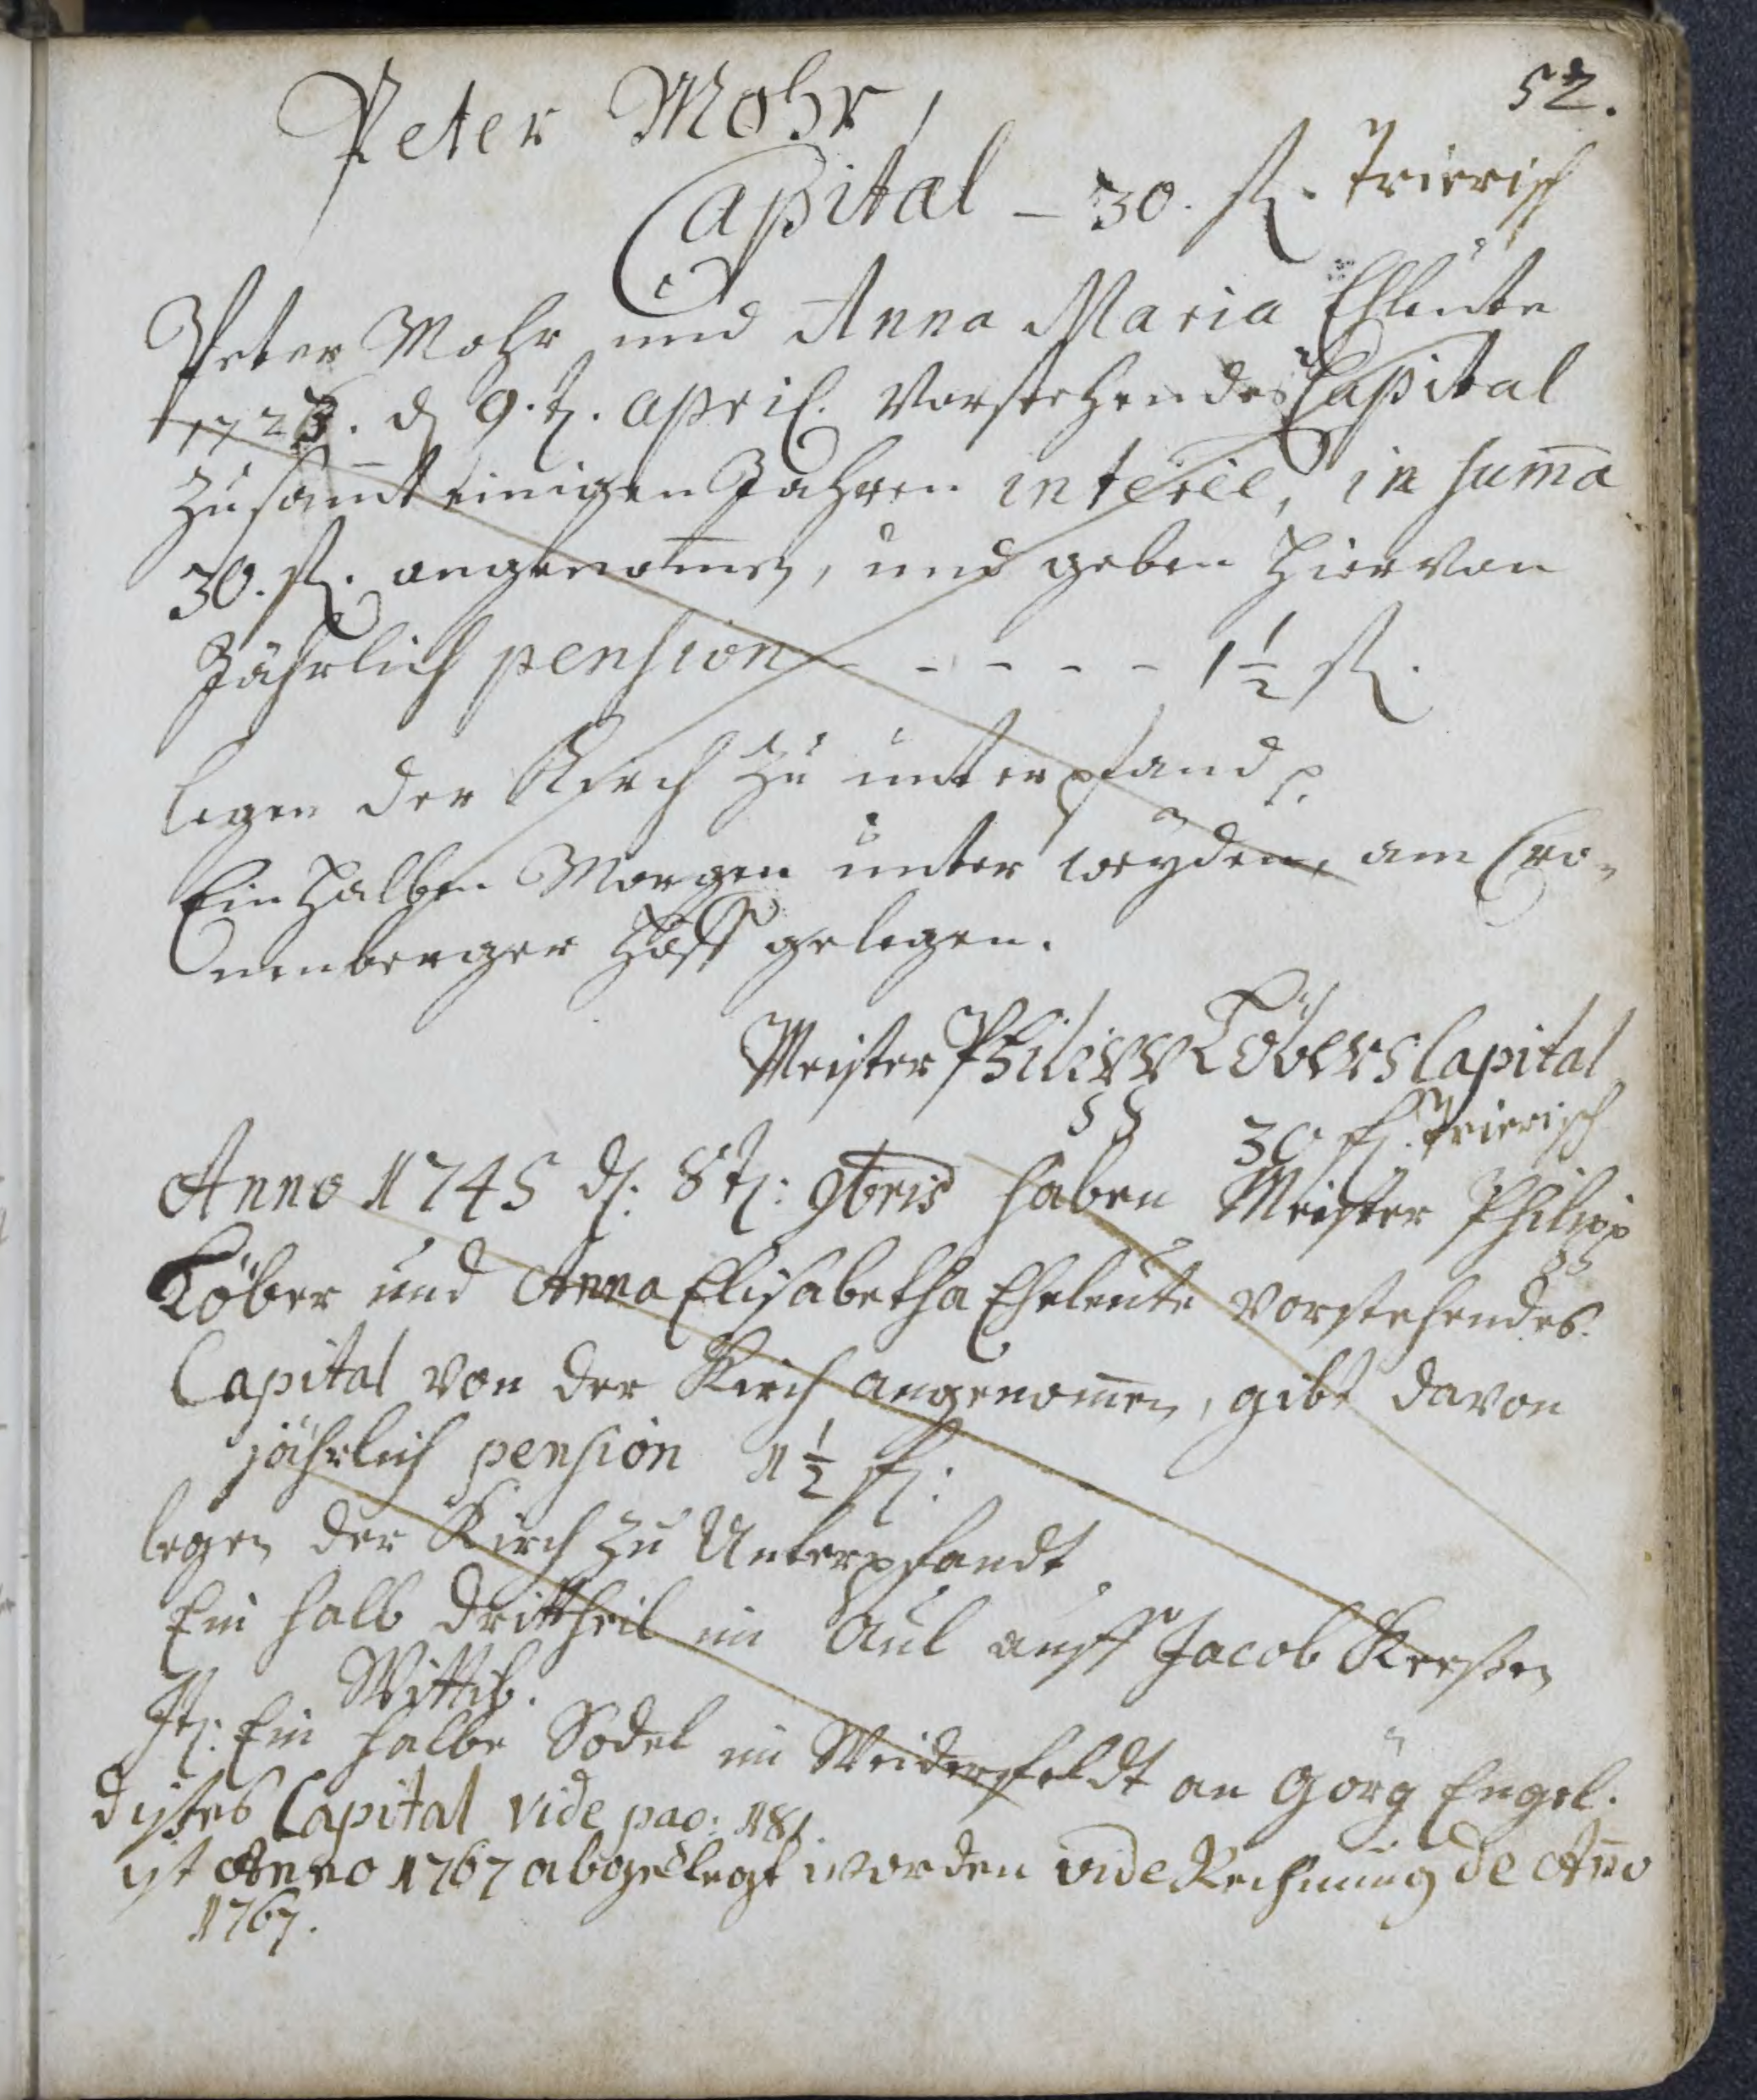 52.
Peter Mohr,
Capital – 30. fl. Trierisch
Peter Mohr und Anna Maria Ehleute
1723. d 9.t. April. Vorstehendes Capital
zusamt einigen Jahren interee, in sum̄a
30. fl. angenom̄en, und geben hiervon
Jährlich pension - - - - - 1 1/2 fl.
legen der Kirch zu unterpfand
Ein halben Morgen unter weyden, am Cro-
nenberger Hoff gelegen.
Meister Philipp Löbers Capital
30 fl. Trierisch
Anno 1745 d. 8t: 9bris haben Meister Philipp
Löber und Anna Elisabetha Eheleute vorstehendes
Capital von der Kirch angenom̄en, gibt davon
jährlich pension 1 1/2 fl:
legen der Kirch zu Unterpfandt
Ein halb drittheil im Aul auff Jacob
Wittib.
It: Ein halbe Sodel im Weidersfeldt an Görg Engel.
dißes Capital vide pag: 181.
ist Anno 1767 abgelegt worden vide Rechnung de An̄o
1767.